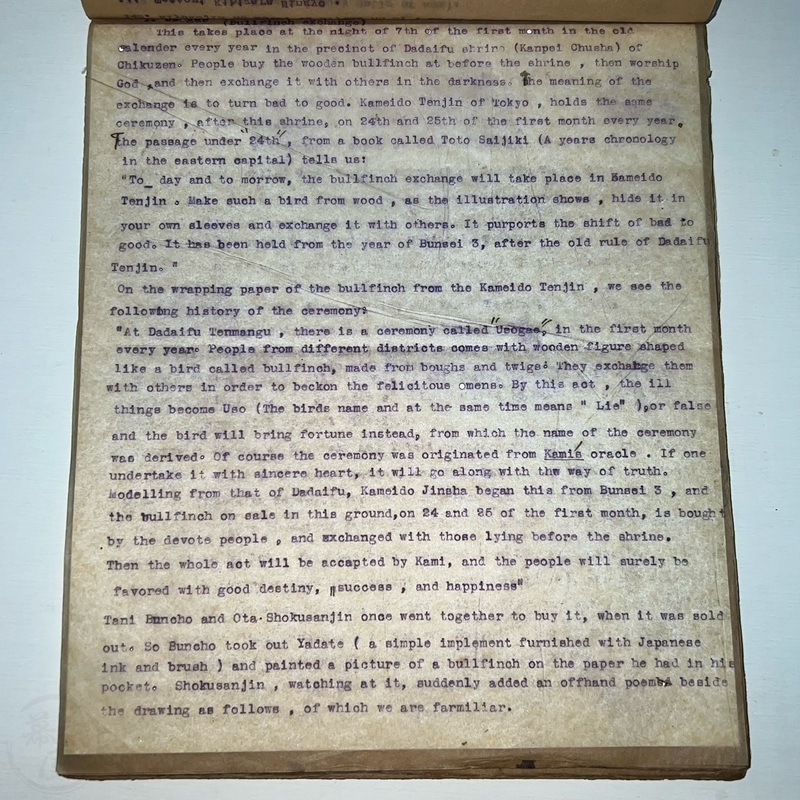 (bullfinch exchange)
This takes place at the night of 7th of the first month in the old
calender every year in the precinct of Dadaifu shrine (Kanpei Chusha) of
Chikuzen. People buy the wooden bullfinch at before the shrine , then worship
God ,and then exchange it with others in the darkness. The meaning of the
exchange is to turn bad to good. Kameido Tenjin of Tokyo , holds the same
ceremony , after this shrine, on 24th and 25th of the first month every year.
The passage under "24th", from a book called Toto Saijiki (A years chronology
in the eastern capital) tells us:
"To_ day and to morrow, the bullfinch exchange will take place in Kameido
Tenjin . Make such a bird from wood , as the illustration shows , hide it in
your own sleeves and exchange it with others. It purports the shift of bad to
good. It has been held from the year of Bunsei 3, after the old rule of Dadaifu
Tenjin. "
On the wrapping paper of the bullfinch from the Kameido Tenjin , we see the
following history of the ceremony:
"At Dadaifu Tenmangu , there is a ceremony called "Usogae", in the first month
every year. People from different districts comes with wooden figure shaped
like a bird called bullfinch, made from boughs and twigs. They exchange them
with others in order to beckon the felicitous omens. By this act , the ill
things become Uso (The birds name and at the same time means " Lie" ),or false
and the bird will bring fortune instead, from which the name of the ceremony
was derived. Of course the ceremony was originated from Kami's oracle . If one
undertake it with sincere heart, it will go along with the way of truth.
Modelling from that of Dadaifu, Kameido Jinsha began this from Bunsei 3 , and
the bullfinch on sale in this ground,on 24 and 25 of the first month, is bought
by the devote people , and exchanged with those lying before the shrine.
Then the whole act will be accapted by Kami, and the people will surely be
favored with good destiny, success , and happiness"
Tani Buncho and Ota Shokusanjin once went together to buy it, when it was sold
out. So Buncho took out Yadate ( a simple implement furnished with Japanese
ink and brush ) and painted a picture of a bullfinch on the paper he had in his
pocket. Shokusanjin , watching at it, suddenly added an offhand poem beside
the drawing as follows , of which we are farmiliar.